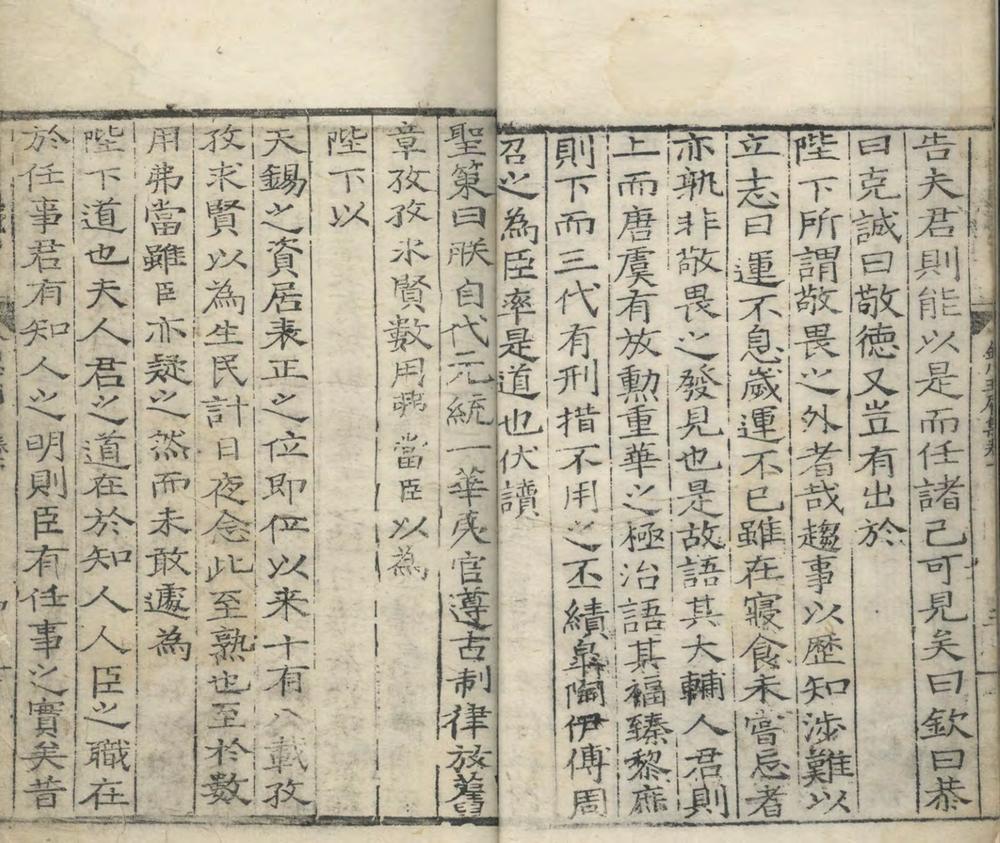 告夫君則能以是而任諸己可見矣曰欽曰恭
曰克誠曰敬德又豈有出於
陛下所謂敬畏之外者哉趨事以歷知涉難以
立志曰運不息歲運不已雖在寢食未嘗忌者
亦孰非敬畏之發見也是故語其大輔人君則
上而唐虞有放勳重華之極治語其福臻黎庶
則下而三代有刑措不用之丕績皐陶伊傅周
召之為臣率是道也伏讀
聖策曰朕自代元統一華夷官遵古制律放舊
章孜孜求賢數用弗當臣以為
陛下以
天錫之資居表正之位即位以来十有八載孜
孜求賢以為生民計日夜念此至熟也至於數
用弗當雖臣亦疑之然而未敢遽為
陛下道也夫人君之道在於知人人臣之職在
於任事君有知人之明則臣有任事之實矣昔